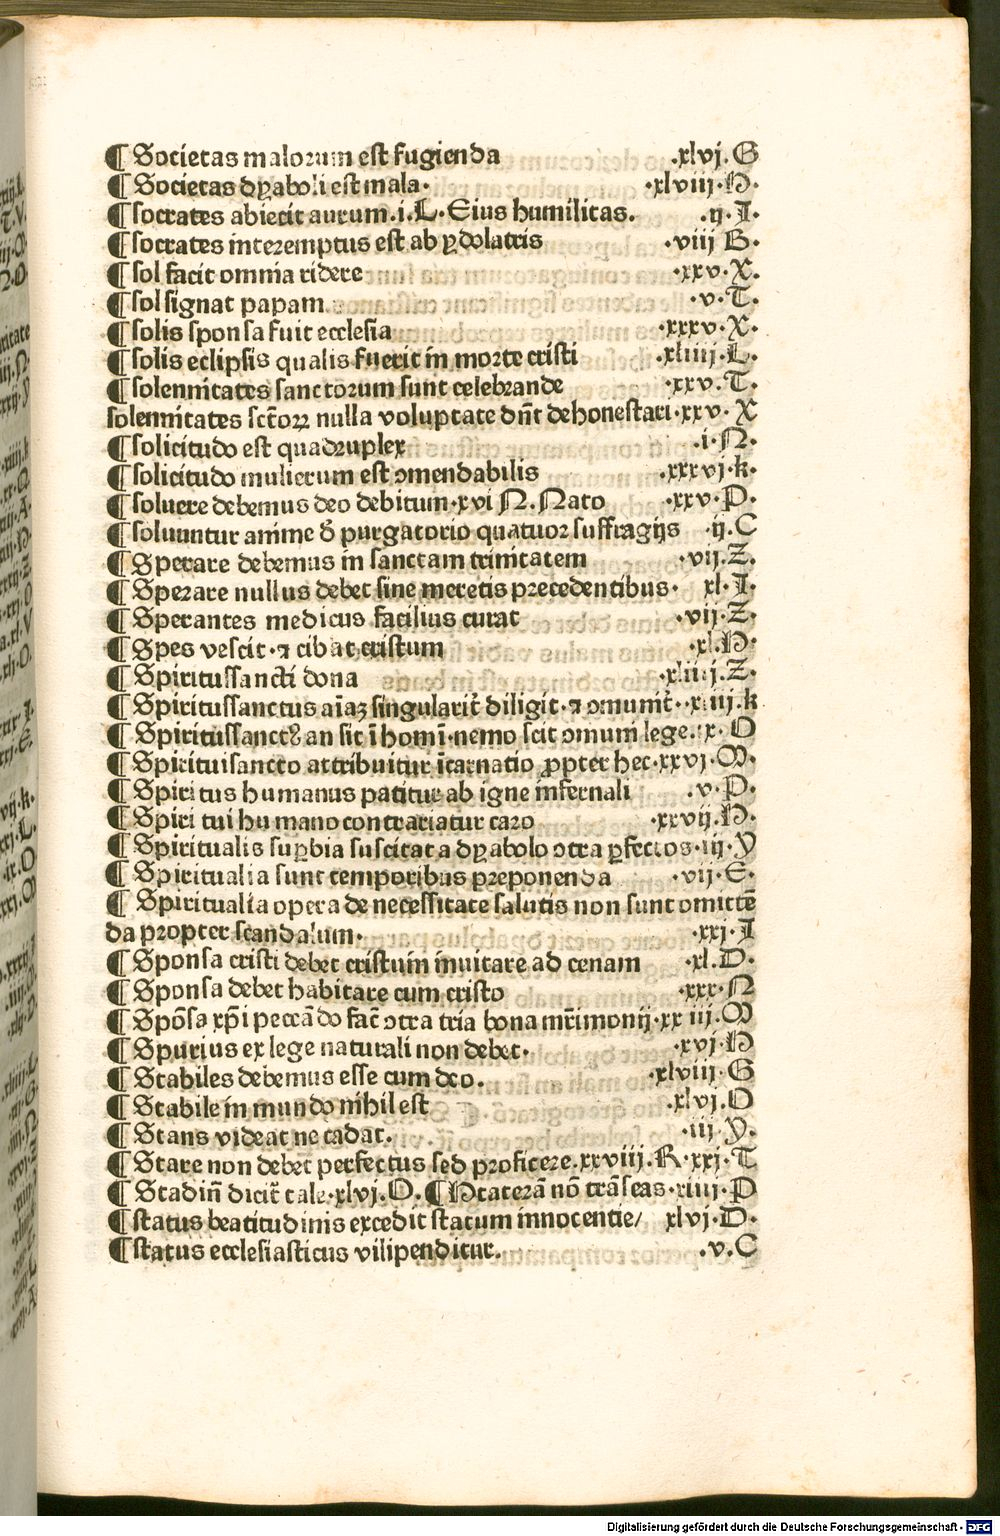 ¶ Societas malorum est fugienda .xlvj.G
¶ Societas dyaboli est mala. .xlviij.H.
¶ socrates abiecit aurum.i.L. Eius humilitas. .ij.I.
¶ socrates interemptus est ab ydolatris .viij B.
¶ sol facit omnia ridere .xxv.X.
¶ sol signat papam .v.T.
¶ solis sponsa fuit ecclesia .xxxv.X.
¶ solis eclipsis qualis fuerit in morte cristi .xliiij.L.
¶ solennitates sanctorum sunt celebrande .xxv.T.
solennitates sctoꝝ nulla voluptate dn̄t dehonestari.xxv.X
¶ solicitudo est quadruplex .i.N.
¶ solicitudo mulierum est ɔmendabilis .xxxvi.k.
¶ soluere debemus deo debitum.xvi N. Nato .xxv.P.
¶ soluuntur anime ð purgatorio quatuor suffragijs .ij.C
¶ Sperare debemus in sanctam trinitatem .vij.Z.
¶ Sperare nullus debet sine meretis precedentibus. xl.I.
¶ Sperantes medicus facilius curat .vij.Z.
¶ Spes vescit.⁊ cibat cristum .xl.H.
¶ Spiritussancti dona .xliiij.Z.
¶ Spiritussanctus aīaꝫ singularit̄ diligit.⁊ ɔmunit̄..xiiij.k
¶ Spiritussanctꝰ an sit ī homī.nemo scit ɔmuni lege.x.O
¶ Spirituisancto attribuitur īcarnatio ꝓpter hec.xxvj.M.
¶ Spiritus humanus patitur ab igne infernali .v.P.
¶ Spiritui humano contrariatur caro .xxvij.H.
¶ Spiritualis suꝑbia suscitat a dyabolo ɔtra ꝑfectos.iij.Y
¶ Spiritualia sunt temporibus preponenda .vij.E.
¶ Spiritualia opera de necessitate salutis non sunt omittē
da propter scandalum. .xxj.I
¶ Sponsa cristi debet cristum inuitare ad cenam .xl.D.
¶ Sponsa debet habitare cum cristo .xxx.N
¶ Spōsa xp̄i peccādo fac̄ ɔtra tria bona mr̄imonij.xxiij.M
¶ Spurius ex lege naturali non debet. .xvj.H
¶ Stabiles debemus esse cum deo. .xlviij.G
¶ Stabile in mundo nihil est .xlvj.O
¶ Stans videat ne cadat. .iij.Y.
¶ Stare non debet perfectus sed proficere.xxviij.R.xxj.T
¶ Stadiū dicit̄ tale.xlvj.O.¶ Stateram nō trāseas.xiiij.P
¶ status beatitudinis excedit statum innocentie/ xlvj.D.
¶ status ecclesiasticus vilipenditur. .v.C
Digitalisierung gefördert durch die Deutsche Forschungsgemeinschaft - DFG